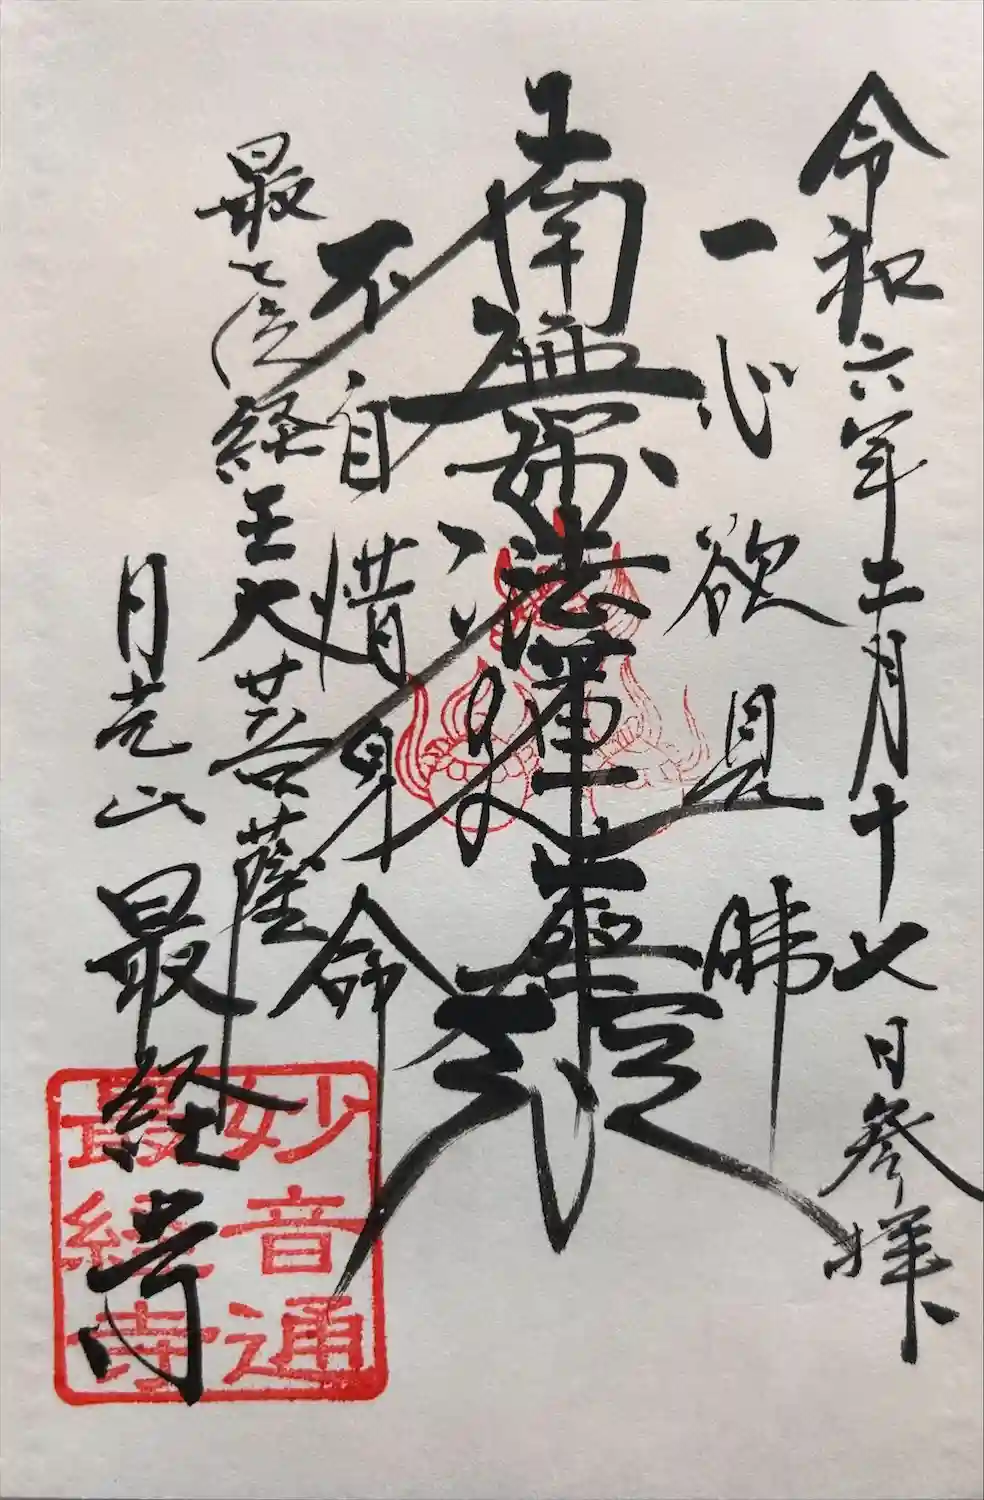 令和六年十二月十七日参拝
一心欲見佛
南無妙法蓮華経
不自惜身命
最上位経王大菩薩
月光山
最経寺
妙音通
最経寺